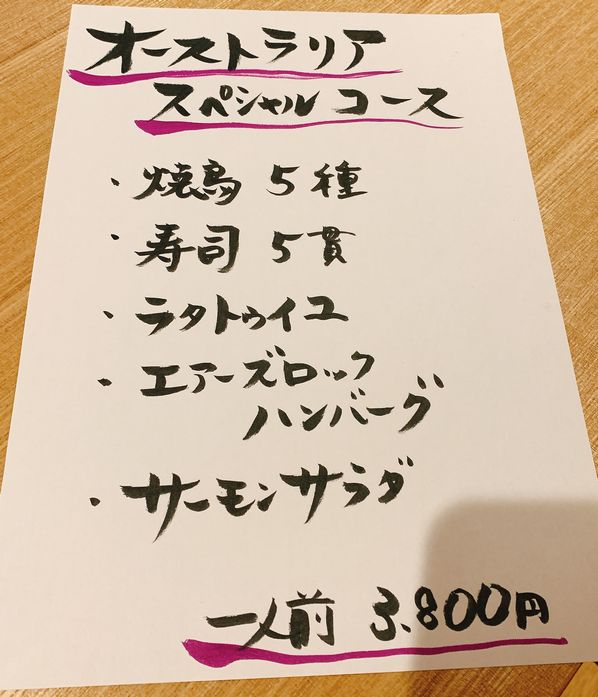 オーストラリア
スペシャルコース
・焼鳥 5種
・寿司 5貫
・ラタトゥイユ
・エアーズロック
ハンバーグ
・サーモンサラダ
一人前 3.800円